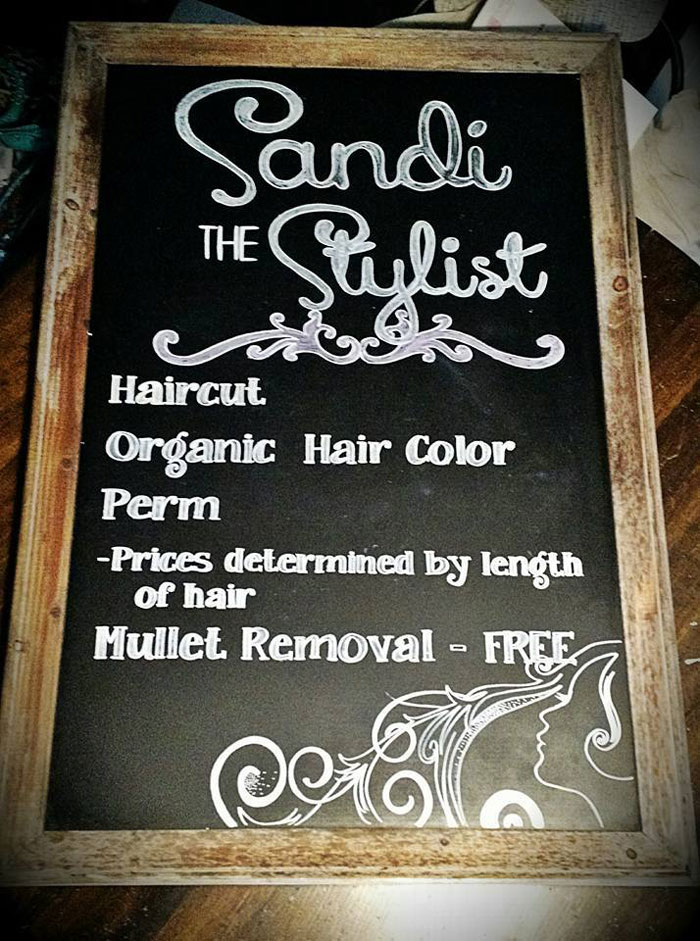 Sandi
THE Stylist
Haircut
Organic Hair Color
Perm
-Prices determined by length
of hair
Mullet Removal - FREE